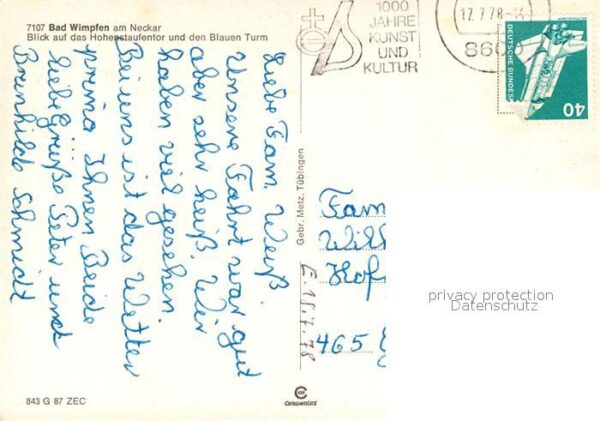 7107 Bad Wimpfen am Neckar
Blick auf das Hohenstaufentor und den Blauen Turm
1000
JAHRE
KUNST
UND
KULTUR
17.7.78
860
DEUTSCHE BUNDESP
40
Liebe Fam. Weiß
Unsere Fahrt war gut
aber sehr heiß. Wir
haben viel gesehen.
Bei uns ist das Wetter
prima Ihnen Beide
liebe Grüße Peter und
Brunhilde Schmidt
Gebr. Metz, Tübingen
E. 18.7.78
Fam
Will
Hof
465
privacy protection
Datenschutz
843 G 87 ZEC
CHROMOLUX